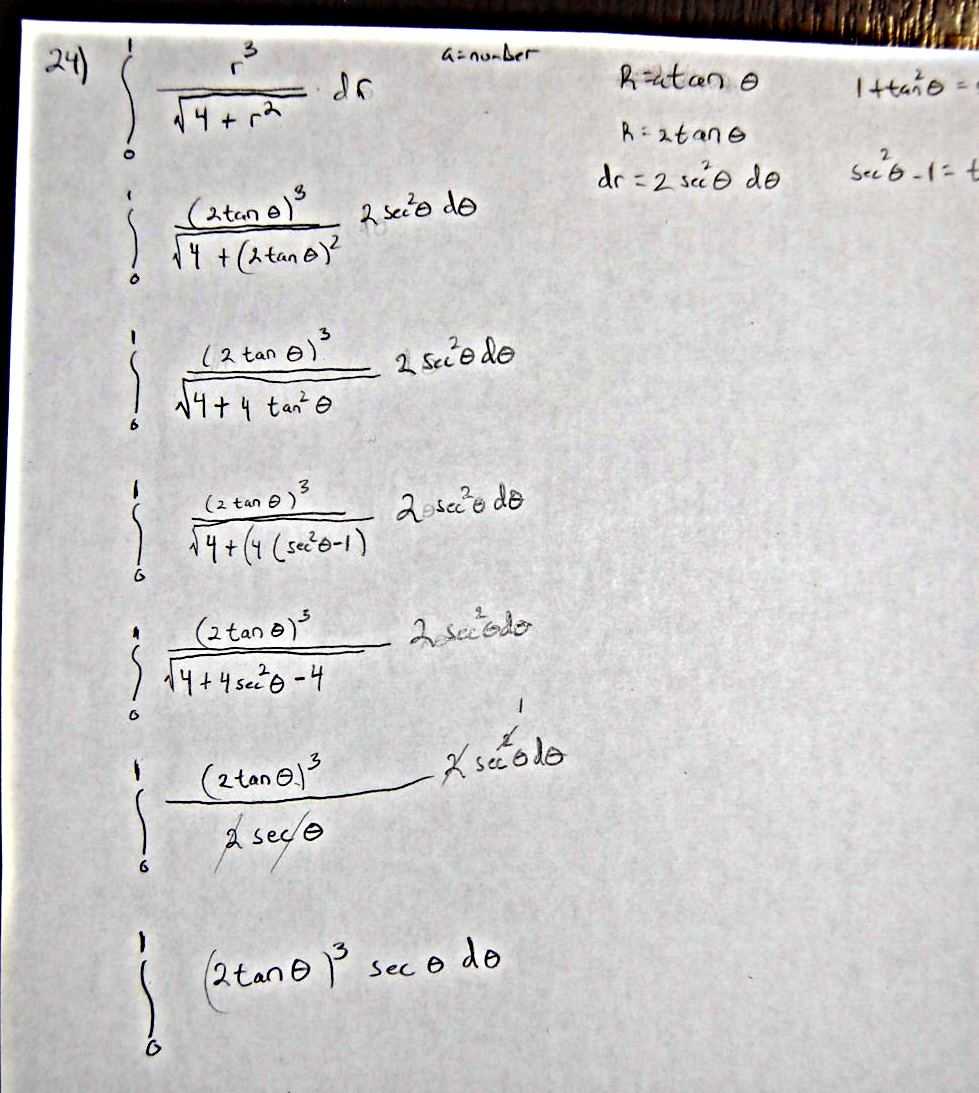 24) ∫₀¹ r³/√(4 + r²) · dr
a=number
R=atan θ
R=2tanθ
dr = 2 sec²θ dθ
1+tan²θ =
sec²θ-1=
∫₀¹ (2tan θ)³/√(4 + (2tanθ)²) 2 sec²θ dθ
∫₀¹ (2 tan θ)³/√(4+4 tan²θ) 2 sec²θ dθ
∫₀¹ (2 tan θ)³/√(4+(4(sec²θ-1)) 2 sec²θ dθ
∫₀¹ (2tan θ)³/√(4+4sec²θ-4) 2 sec²θ dθ
∫₀¹ (2tan θ)³/(2 sec θ) 2 sec²θ dθ
1
∫₀¹ (2tanθ)³ sec θ dθ